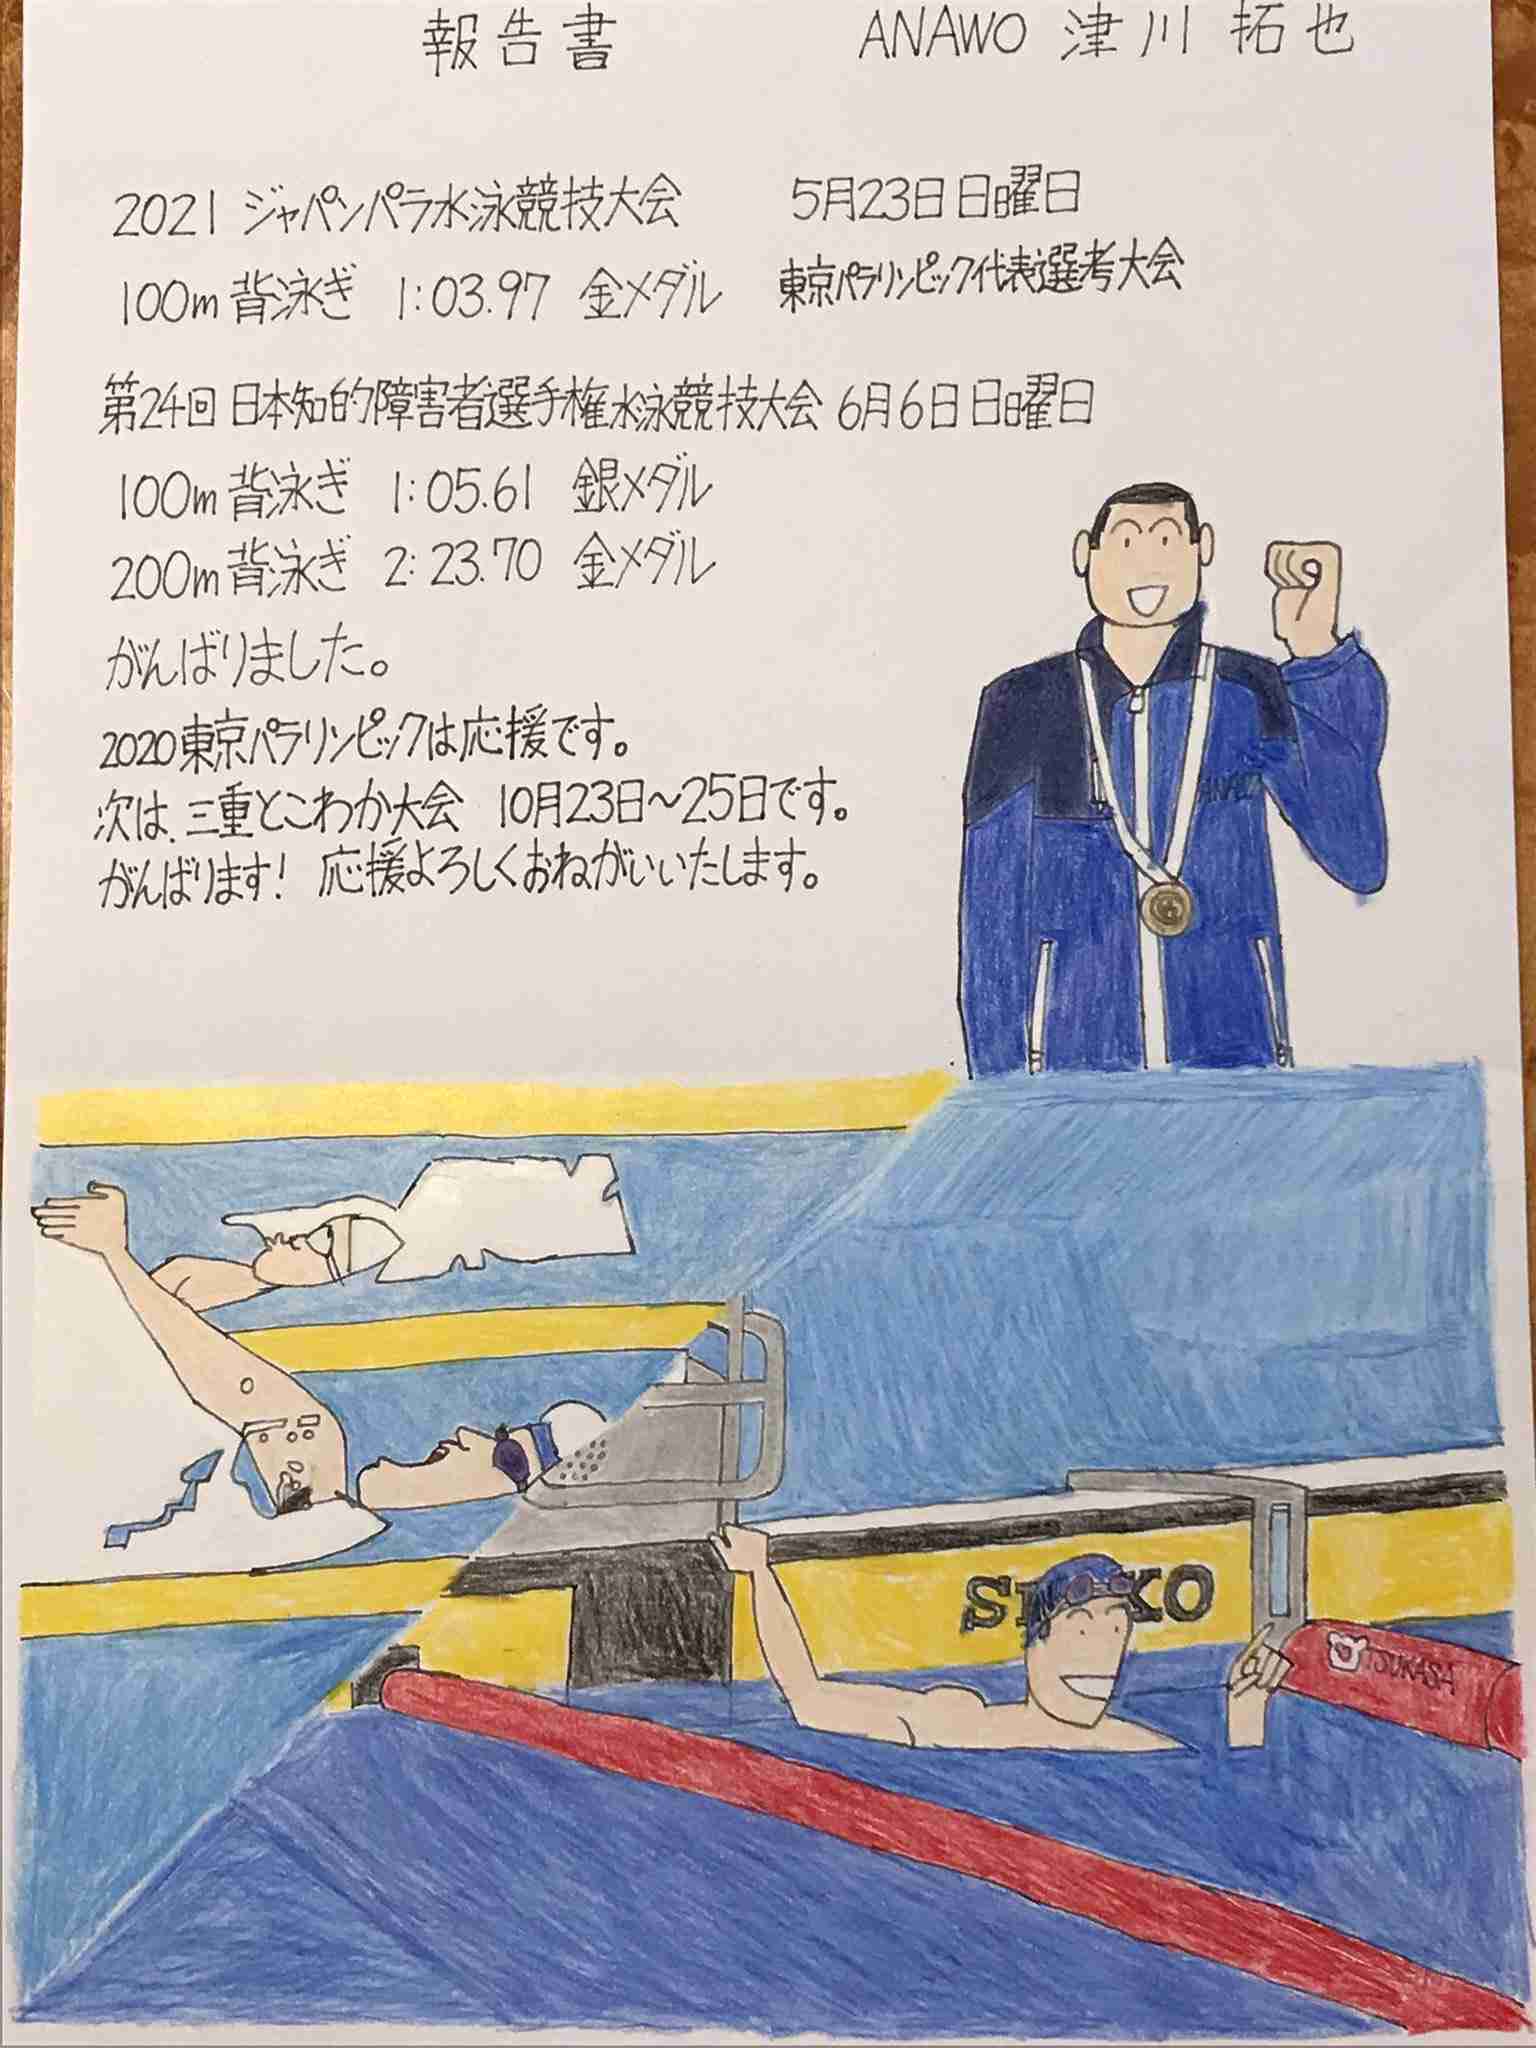 報告書 ANAWO 津川 拓也
2021 ジャパンパラ水泳競技大会 5月23日 日曜日
100m 背泳ぎ 1:03.97 金メダル 東京パラリンピック代表選考大会
第24回 日本知的障害者選手権水泳競技大会 6月6日 日曜日
100m 背泳ぎ 1:05.61 銀メダル
200m 背泳ぎ 2:23.70 金メダル
がんばりました。
2020東京パラリンピックは応援です。
次は、三重とこわか大会 10月23日〜25日です。
がんばります! 応援よろしくおねがいいたします。
TSUKASA